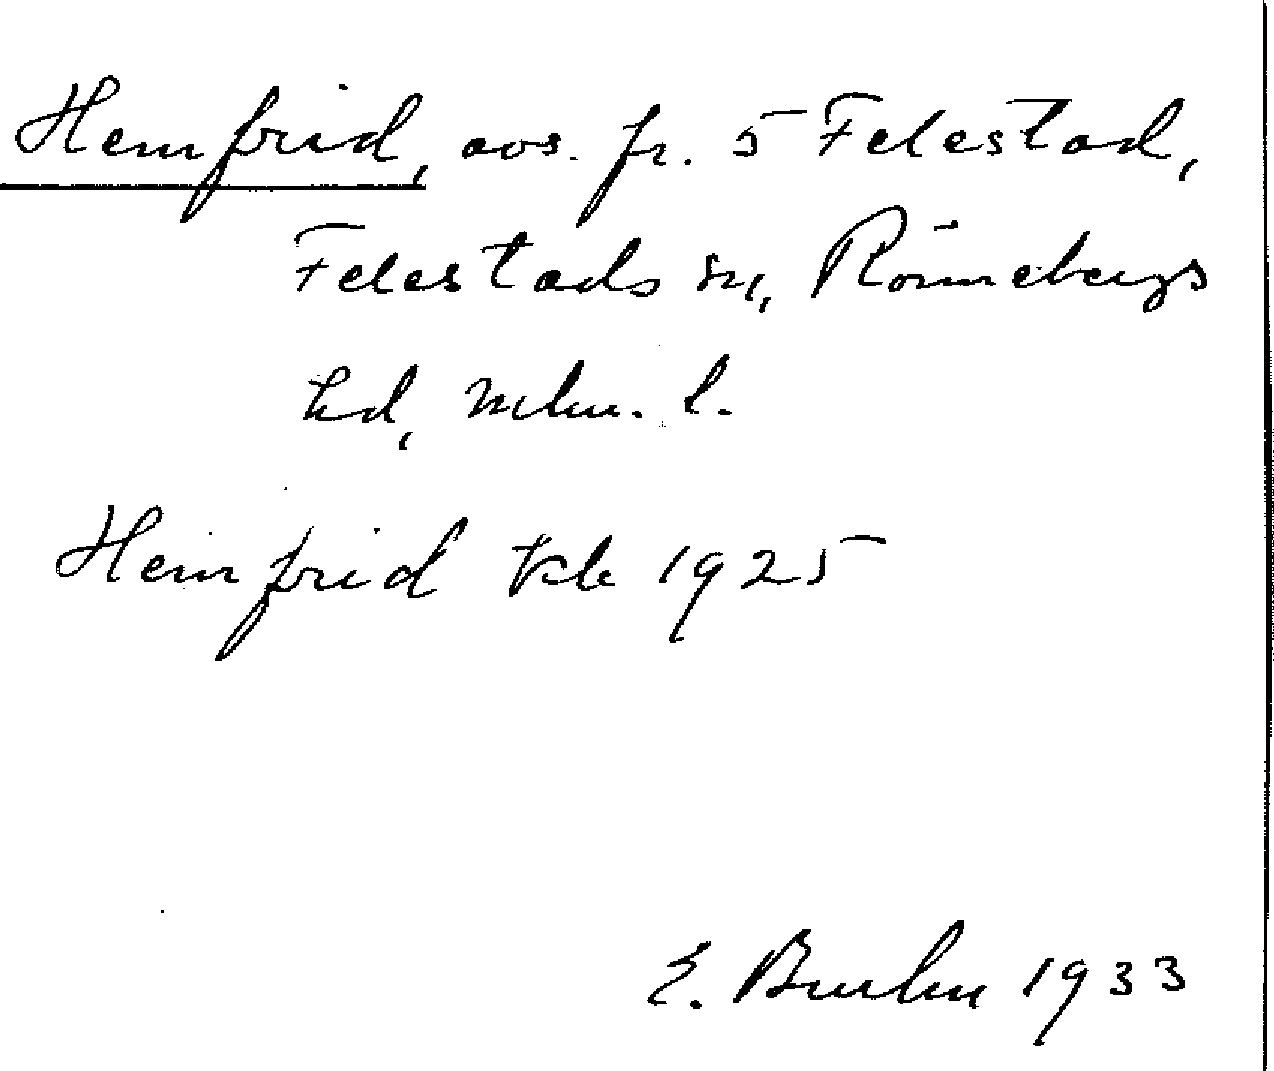 Hemfrid, avs. fr. 5 Felestad,
Felestads sn, Rönnebergs
hd, Mlm. l.
Hemfrid Kk 1925
E. Bruhn 1933